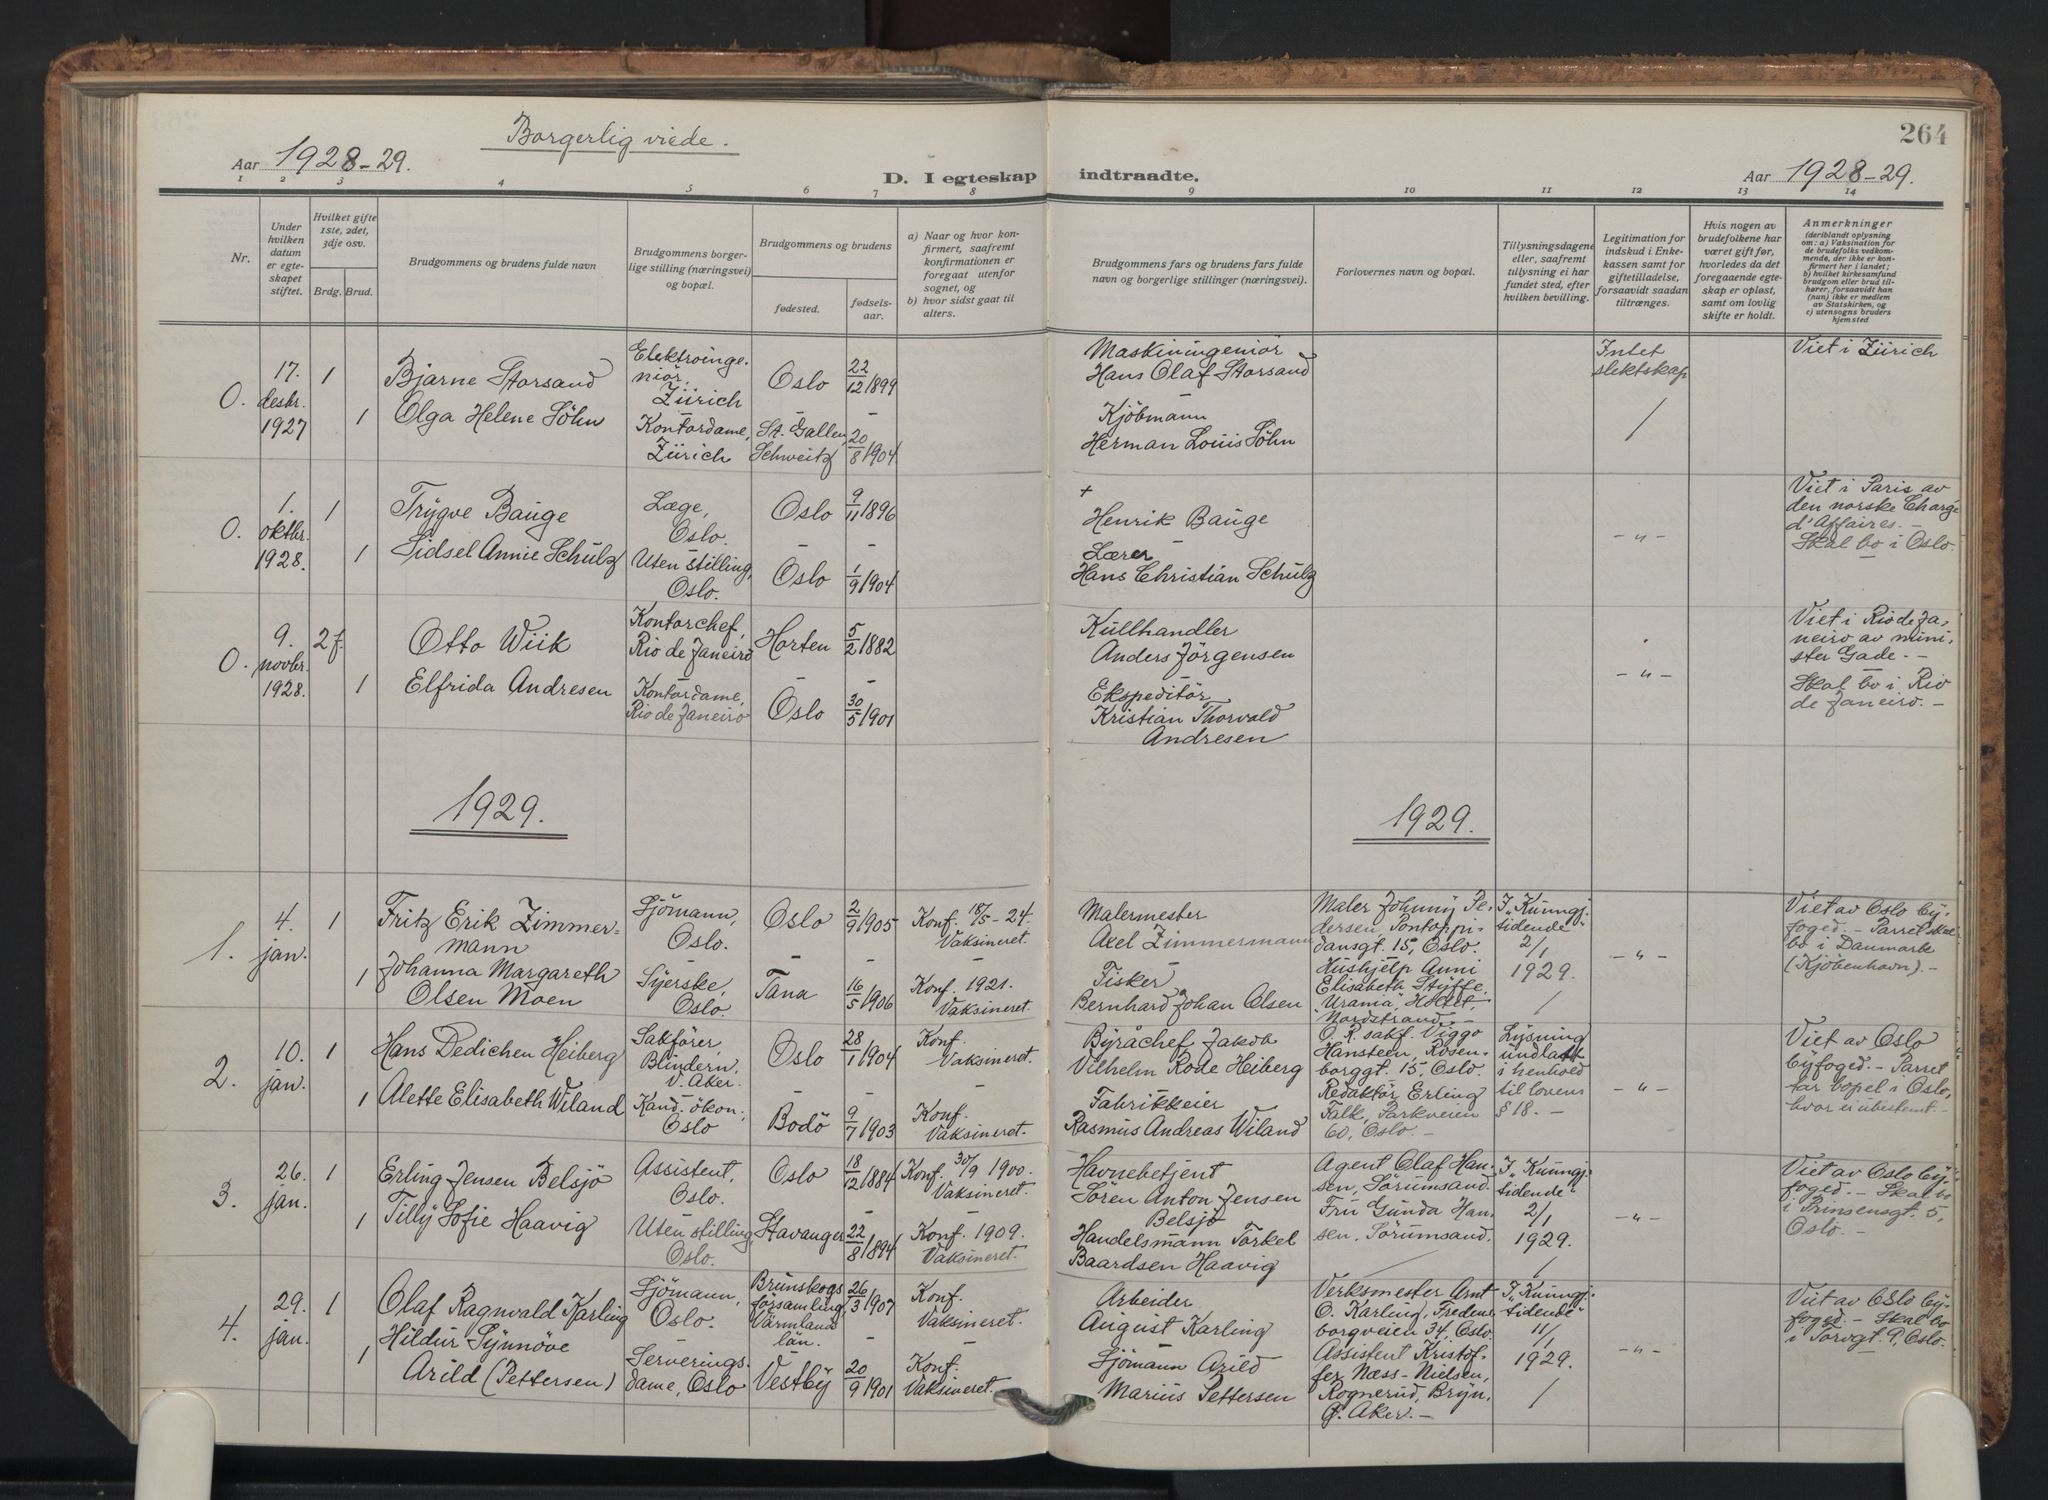 264
Borgerlig viede.
Aar 1928-29.
D. I egteskap indtraadte.
Aar 1928-29.
1 2 3 4 5 6 7 8 9 10 11 12 13 14
Nr.
Under
hvilken
datum
er egte-
skapet
stiftet.
Hvilket gifte
1ste, 2det,
3dje osv.
Brdg. Brud.
Brudgommens og brudens fulde navn
Brudgommens borger-
lige stilling (næringsvei)
og bopæl.
Brudgommens og brudens
fødested.
fødsels-
aar.
a) Naar og hvor kon-
firmert, saafremt
konfirmationen er
foregaat utenfor
sognet, og
b) hvor sidst gaat til
alters.
Brudgommens fars og brudens fars fulde
navn og borgerlige stillinger (næringsvei).
Forlovernes navn og bopæl.
Tillysningsdagene
eller, saafremt
tillysning ei har
fundet sted, efter
hvilken bevilling.
Legitimation for
indskud i Enke-
kassen samt for
giftetilladelse,
forsaavidt saadan
tiltrænges.
Hvis nogen av
brudefolkene har
været gift før,
hvorledes da det
foregaaende egte-
skap er opløst,
samt om lovlig
skifte er holdt.
Anmerkninger
(deriblandt oplysning
om: a) Vaksination for
de brudefolks vedkom-
mende, der ikke er kon-
firmert her i landet;
b) hvilket kirkesamfund
brudgom eller brud til-
hører, forsaavidt han
(hun) ikke er medlem
av Statskirken, og
c) utensogns bruders
hjemsted
0.
17.
desbr.
1927
1
1
Bjarne Storsand
Olga Helene Söhn
Elektroinge-
niör,
Zürich
Kontordame,
Zürich
Oslo
-
St. Gallen,
Schweitz
22/12 1899
-
20/8 1904
Maskiningeniör
Hans Olaf Storsand
Kjöbmann
Herman Louis Söhn
Intet
slektskap
/
Viet i Zürich
0.
1.
oktbr.
1928.
1
1
Trygve Bauge
Sidsel Annie Schulz
Læge,
Oslo.
Uten stilling,
Oslo.
Oslo
-
Oslo
9/11 1896
-
1/9 1904
+
Henrik Bauge
Lærer
Hans Christian Schulz
-"-
Viet i Paris av
den norske Charge
d'Affaires. -
Skal bo i Oslo.
0.
9.
novbr.
1928.
2 f.
1
Otto Wiik
Elfrida Andresen
Kontorchef,
Rio de Janeiro
Kontordame,
Rio de Janeiro
Horten
-
Oslo
5/2 1882
-
30/5 1901
Kullhandler
Anders Jörgensen
Ekspeditör
Kristian Thorvald
Andresen
-"-
Viet i Rio de Ja-
neiro av mini-
ster Gade. -
Skal bo i Rio
de Janeiro. -
1929.
1929.
1.
4.
jan.
1
1
Fritz Erik Zimmer-
mann
Johanna Margareth
Olsen Moen
Sjömann,
Oslo.
Syerske,
Oslo.
Oslo
-
Tana
2/9 1905
-
16/5 1906
Konf. 18/5-24.
Vaksineret.
-
Konf. 1921.
Vaksineret.
Malermester
Axel Zimmermann
Fisker
Bernhard Johan Olsen
Maler Johnny Pe-
dersen, Pontoppi-
dansgt. 15, Oslo.
Hushjelp Anni
Elisabeth Styffe,
"Urania," Hotel,
Nordstrand. -
I "Kunngj.
tidende"
2/1
1929.
/
-"-
Viet av Oslo by-
foged. - Parret skal
bo i Danmark
(Kjöbenhavn). -
2.
10.
jan.
1
1
Hans Dedichen Heiberg
Alette Elisabeth Wiland
Sakförer,
Blindern,
V. Aker.
Kand. ökon.,
Oslo
Oslo
-
Bodö
28/1 1904
-
9/7 1903
Konf.
Vaksineret.
-
Konf.
Vaksineret.
Byråchef Jakob
Vilhelm Rode Heiberg
Fabrikkeier
Rasmus Andreas Wiland
O. R. sakf. Viggo
Hansteen, Rosen-
borggt. 15, Oslo.
Redaktör Erling
Falk, Parkveien
60, Oslo. -
Lysning
undlatt
i henhold
til lovens
§ 18. -
-"-
Viet av Oslo
byfoged. - Parret
tar bopel i Oslo,
hvor ei ubestemt. -
3.
26.
jan.
1
1
Erling Jensen Belsjö
Tilly Sofie Haavig
Assistent,
Oslo.
Uten stilling,
Oslo.
Oslo
-
Stavanger
18/12 1884
-
22/8 1894
Konf. 30/9 1900.
Vaksineret.
Konf. 1909.
Vaksineret.
Havnebetjent
Sören Anton Jensen
Belsjö
Handelsmann Torkel
Baardsen Haavig
Agent Olaf Han-
sen, Sörumsand.
Fru Gunda Han-
sen, Sörumsand.
/
I "Kunngj.
tidende"
2/1
1929.
/
-"-
Viet av Oslo by-
foged. - Skal bo
i Prinsensgt. 5,
Oslo. -
4.
29.
jan.
1
1
Olaf Ragnvald Karling
Hildur Synnöve
Arild (Pettersen)
Sjömann,
Oslo.
Serverings-
dame, Oslo
Brunskogs
församling,
Värmlands
län.
Vestby
26/3 1907
-
20/9 1901
Konf.
Vaksineret.
Konf.
Vaksineret.
Arbeider
August Karling
Sjömann Arild
Marius Pettersen
Verksmester Arnt
O. Karling, Fredens-
borgveien 34, Oslo.
Assistent Kristof-
fer Næss-Nielsen,
Rognerud, Bryn,
Ø. Aker. -
I "Kunngj.
tidende"
11/1
1929.
/
-"-
Viet av Oslo by-
foged. - Skal bo
i Torvgt. 9, Oslo.